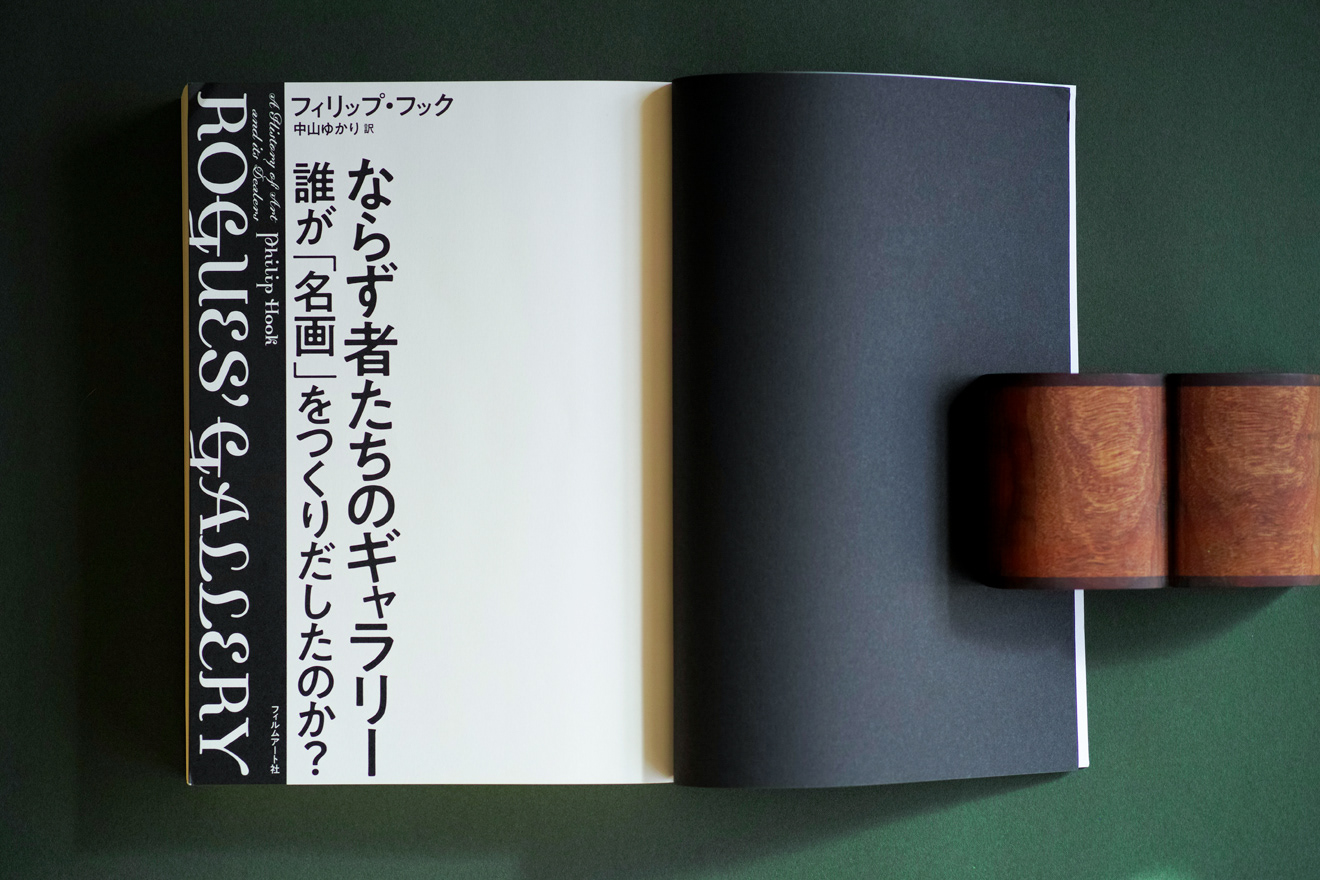 フィリップ・フック
中山ゆかり 訳
ならず者たちのギャラリー
誰が「名画」をつくりだしたのか？
A History of Art
and its Dealers
Philip Hook
ROGUES' GALLERY
フィルムアート社